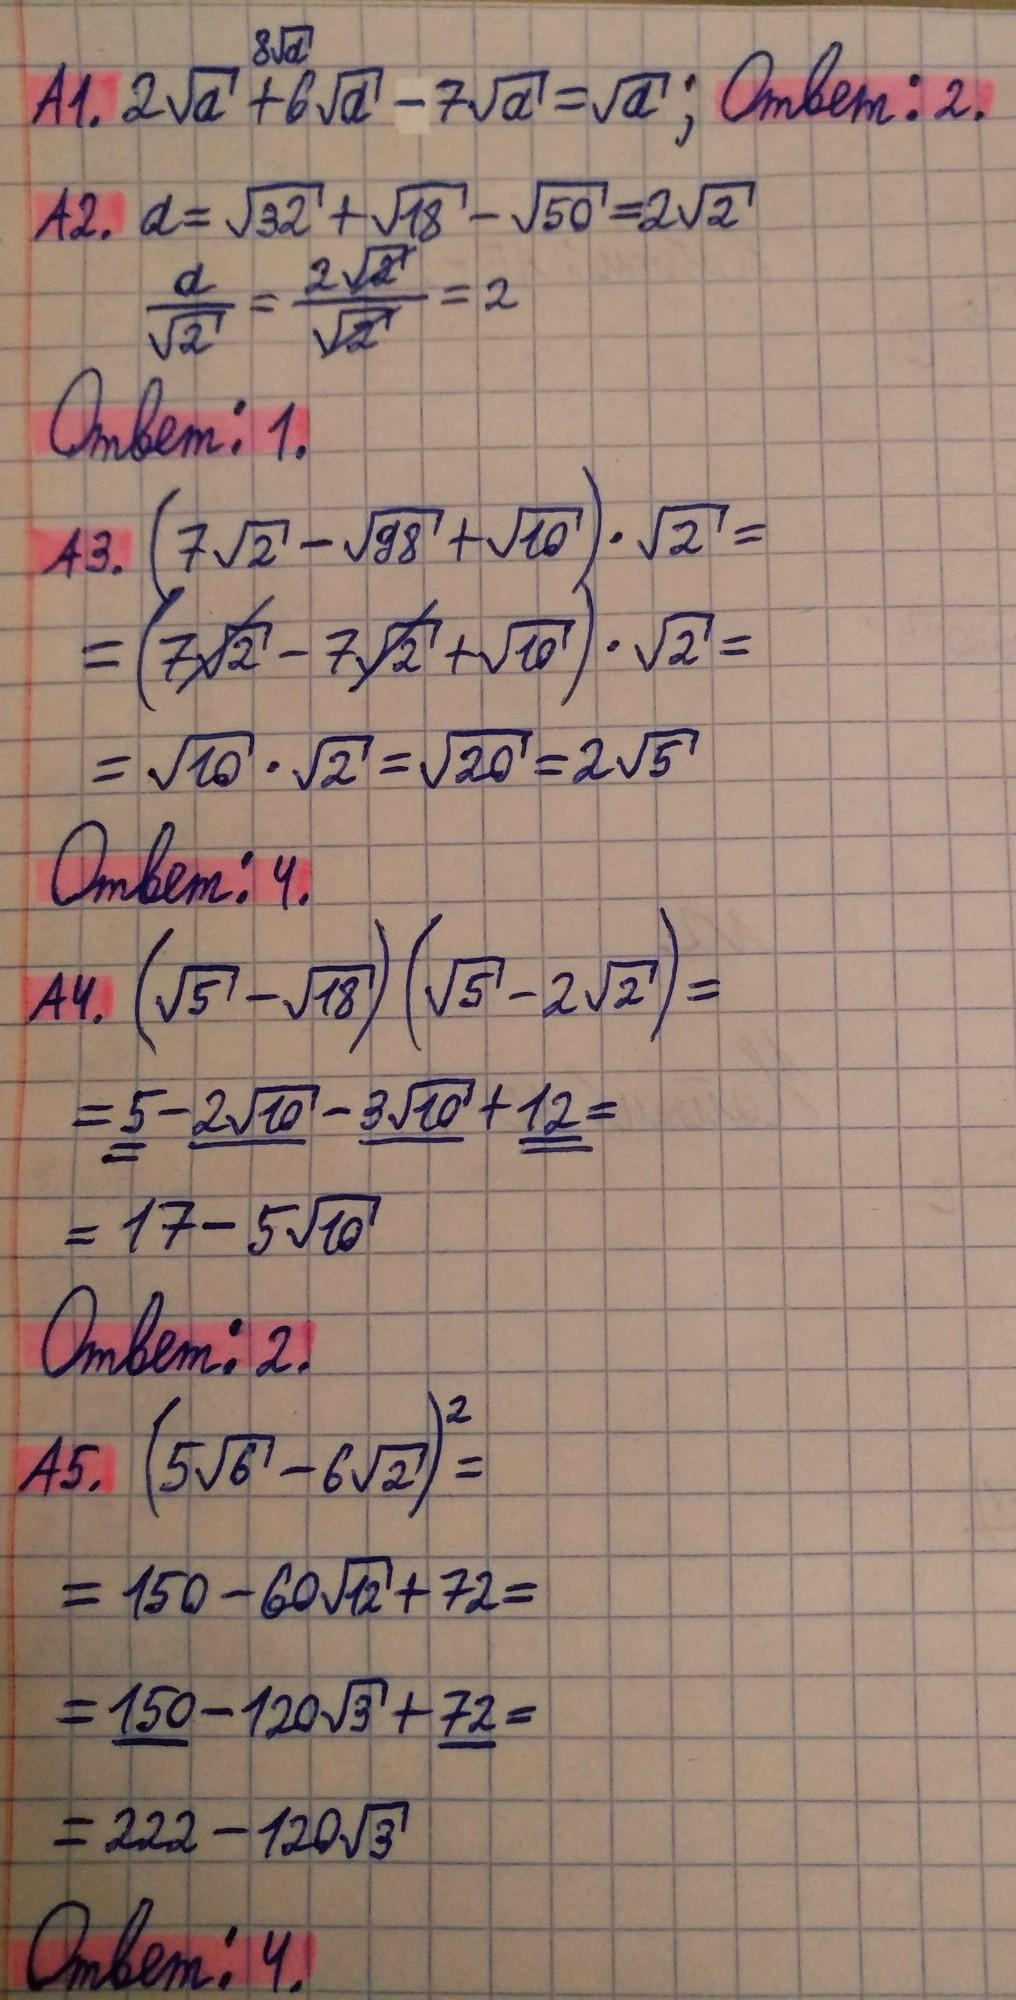 8√a
A1. 2√a + 6√a − 7√a = √a; Ответ: 2.
A2. a = √32 + √18 − √50 = 2√2
a/√2 = 2√2/√2 = 2
Ответ: 1.
A3. (7√2 − √98 + √10) · √2 =
= (7√2 − 7√2 + √10) · √2 =
= √10 · √2 = √20 = 2√5
Ответ: 4.
A4. (√5 − √18)(√5 − 2√2) =
= 5 − 2√10 − 3√10 + 12 =
= 17 − 5√10
Ответ: 2.
A5. (5√6 − 6√2)² =
= 150 − 60√12 + 72 =
= 150 − 120√3 + 72 =
= 222 − 120√3
Ответ: 4.